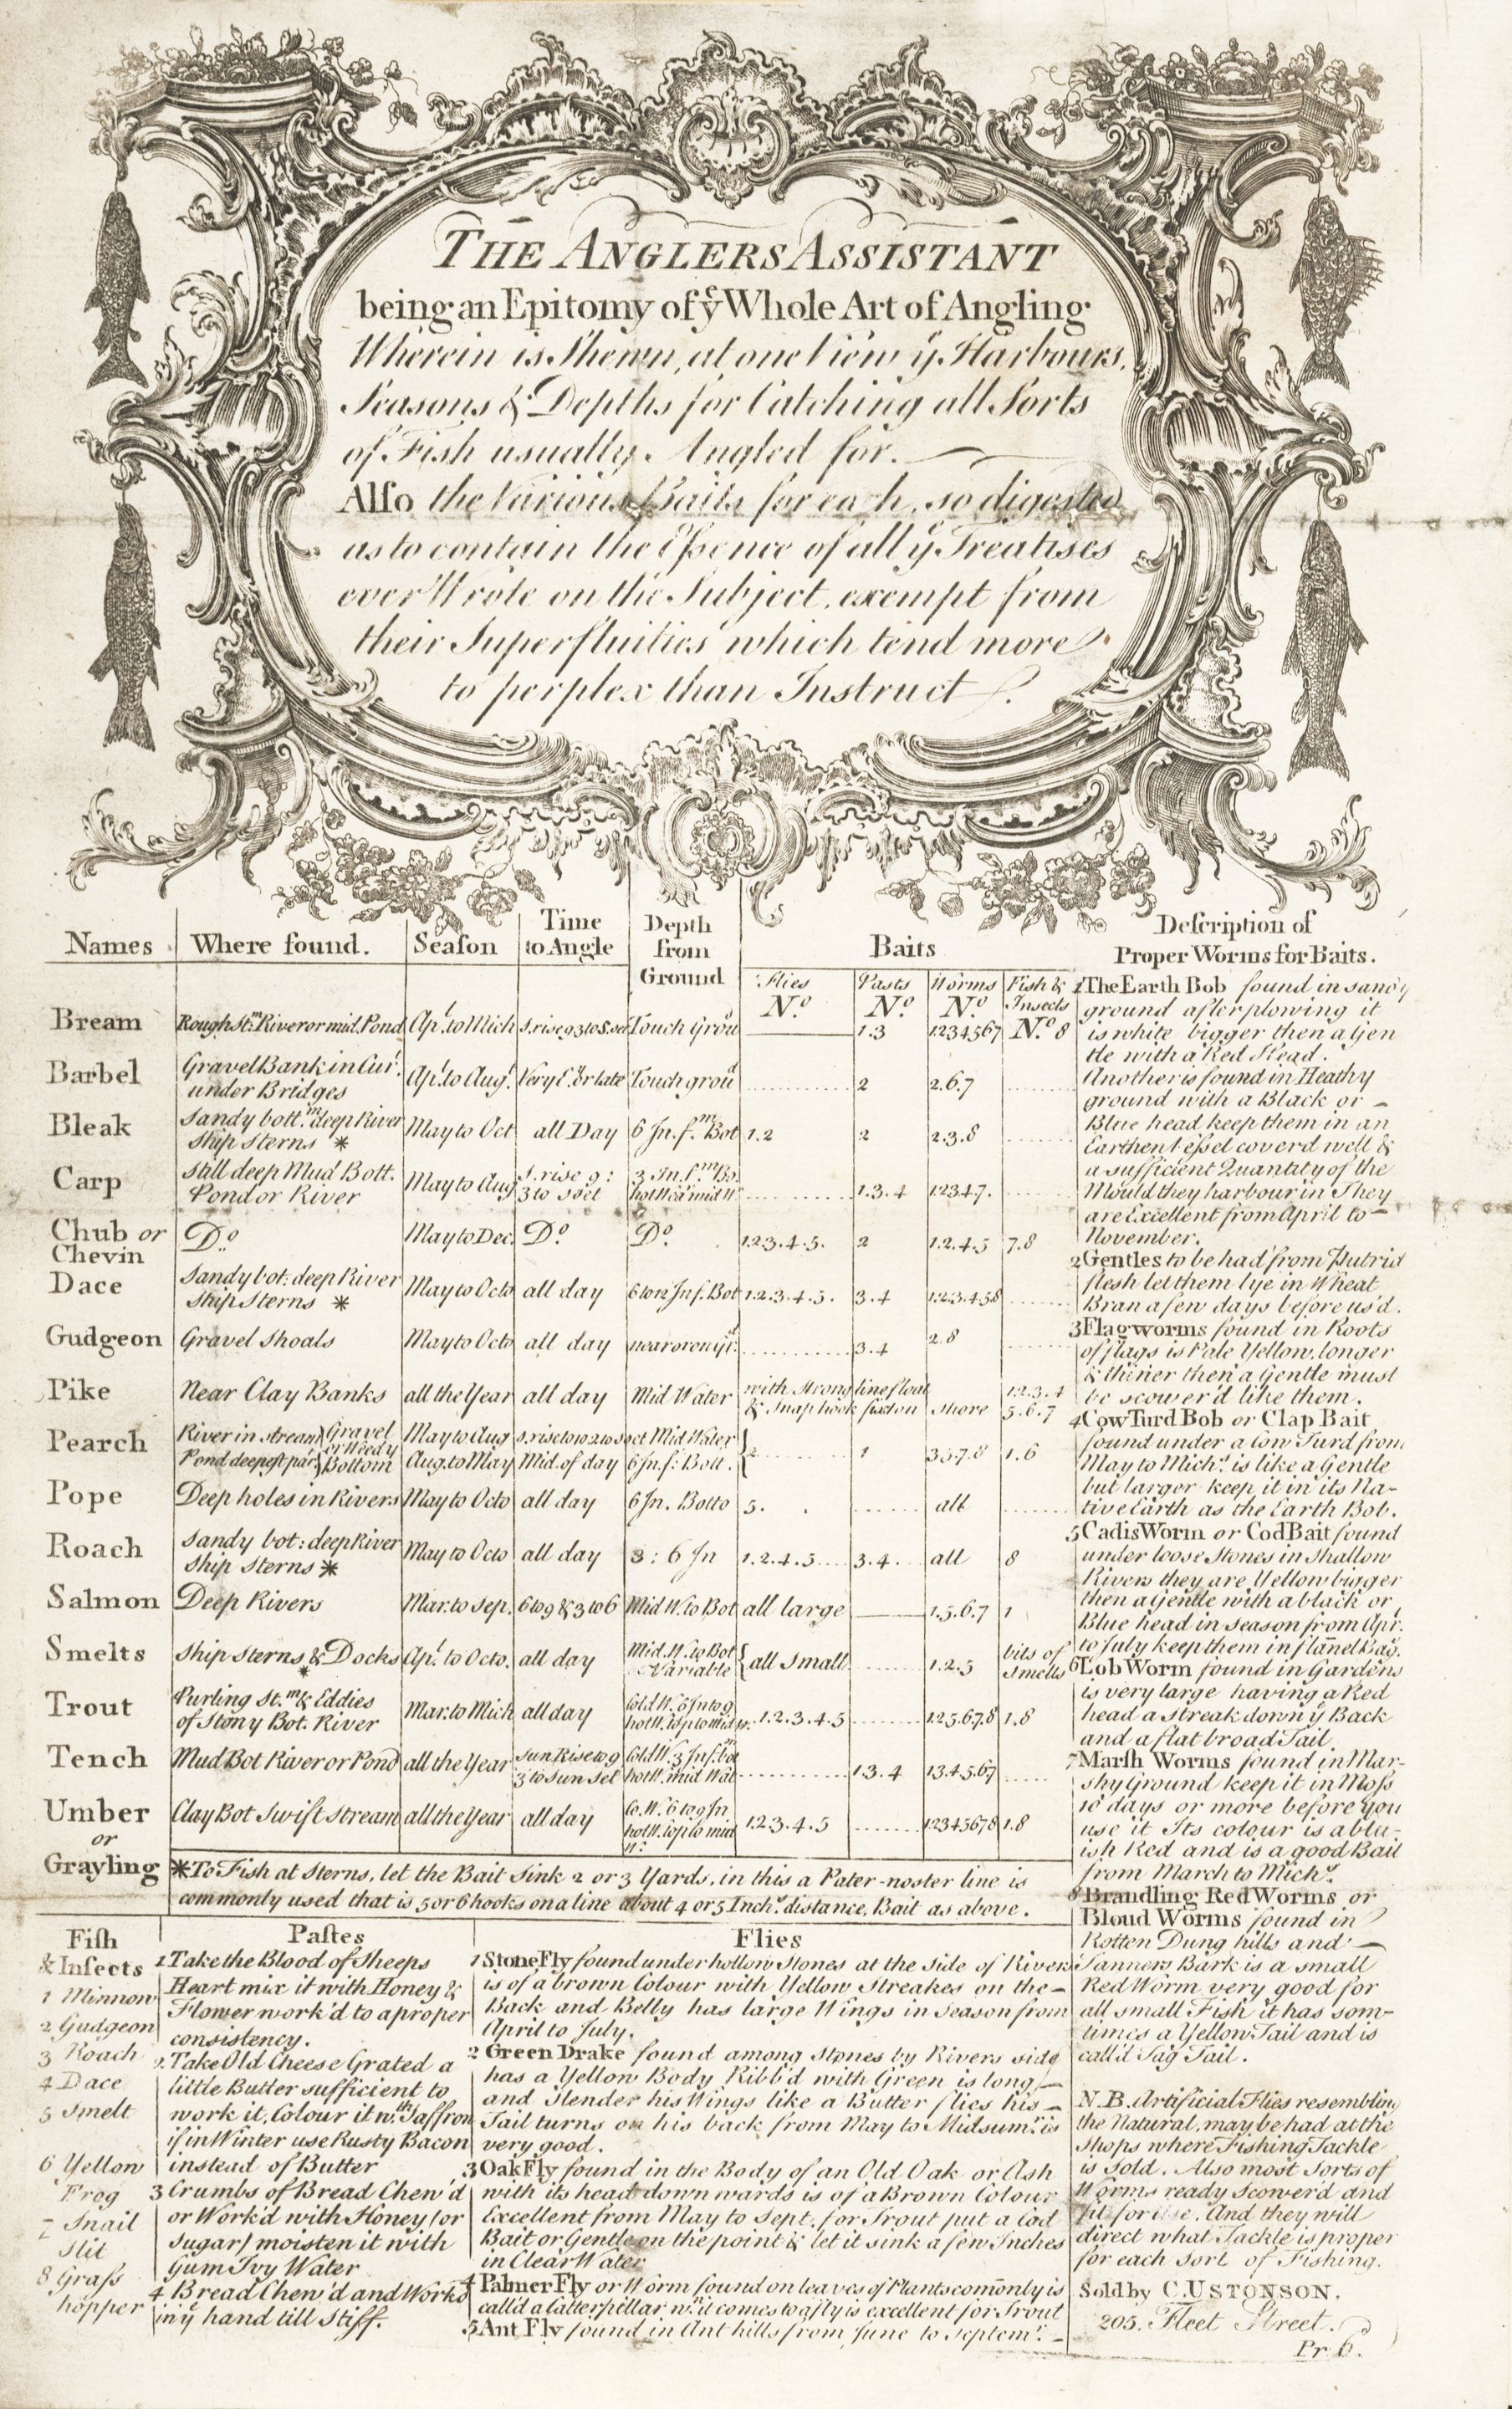 THE ANGLERS ASSISTANT
being an Epitomy of yͤ Whole Art of Angling
Wherein is Shewn, at one View yͤ Harbours,
Seasons & Depths for Catching all Sorts
of Fish usually Angled for.
Alſo the Various Baits for each, so digested
as to contain the Eſsence of all yͤ Treatises
ever Wrote on the Subject, exempt from
their Superfluities which tend more
to perplex than Instruct.
Names Where found. Seaſon Time to Angle Depth from Ground Baits
Flies Nº. Pasts Nº. Worms Nº. Fish & Insects Nº.
Bream Rough St.ᵐ River or mid. Pond Apˡ. to Mich s.rise 9 3 to S.set Touch Groud 1.3 1234567 8
Barbel Gravel Bank in Cur.ᵗ under Bridges Apˡ. to Augᵗ. Very E. or late Touch groud 2 2.6.7
Bleak Sandy bott.ᵐ deep River Ship Sterns * May to Oct all Day 6 In. f.ᵐ Bot 1.2 2 2.3.8
Carp Still deep Mud Bott. Pond or River May to Aug S.rise 9: 3 to S set 3 In. f.ᵐ Bo. hot Wea mid W. 1.3.4 12347.
Chub or Chevin Dº May to Dec. Dº. Dº. 1.2.3.4.5. 2 1.2.4.5 7.8
Dace Sandy bot: deep River Ship Sterns * May to Octo all day 6 to 12 In f. Bot 1.2.3.4.5. 3.4 1.2.3.4.5.8
Gudgeon Gravel Shoals May to Octo all day near or on gr.ᵈ 3.4 2.8
Pike Near Clay Banks all the Year all day Mid Water with Strong line float & Snap hook fix'd on Shore 1.2.3.4 5.6.7
Pearch River in stream Gravel or Weedy Bottom Pond deepest part May to Aug s.rise to 10 2 to s set Mid Water Aug. to May Mid. of day 6 In. f: Bott. 1 3.5.7.8 1.6
Pope Deep holes in Rivers May to Octo all day 6 In. Botto 5. all
Roach Sandy bot: deep River Ship Sterns * May to Octo all day 3:6 In 1.2.4.5 3.4. all 8
Salmon Deep Rivers Mar. to Sep. 6 to 9 & 3 to 6 Mid W. to Bot all large 1.5.6.7 1
Smelts Ship Sterns & Docks * Apˡ. to Octo. all day Mid. W. to Bot Variable all Small 1.2.5 bits of Smelts
Trout Purling St.ᵐ & Eddies of Stony Bot. River Mar. to Mich all day Cold W. 6 In to 9 hot W. top to mid w. 1.2.3.4.5 1.2.5.6.7.8 1.8
Tench Mud Bot River or Pond all the Year Sun Rise to 9 3 to Sun Set Cold W. 3 In f.ᵐ bot hot W. mid Wat 1.3.4 1.3.4.5.6.7
Umber or Grayling Clay Bot Swift Stream all the Year all day Co. W. 6 to 9 In. hot W. top to mid W. 1.2.3.4.5 12345678 1.8
*To Fish at Sterns, let the Bait Sink 2 or 3 Yards, in this a Pater-noster line is
commonly used that is 5 or 6 hooks on a line about 4 or 5 Inchˢ. distance, Bait as above.
Deſcription of
Proper Worms for Baits.
1 The Earth Bob found in sandy
ground after plowing it
is white bigger then a Gen
tle with a Red Head.
Another is found in Heathy
ground with a Black or
Blue head keep them in an
Earthen Veſsel cover'd well &
a sufficient Quantity of the
Mould they harbour in They
are Excellent from April to
November.
2 Gentles to be had from Putrid
flesh let them lye in Wheat
Bran a few days before us'd.
3 Flagworms found in Roots
of flags is Pale Yellow, longer
& thiner then a Gentle must
be scower'd like them.
4 Cow Turd Bob or Clap Bait
found under a Cow Turd from
May to Michˢ. is like a Gentle
but larger keep it in its Na-
tive Earth as the Earth Bob.
5 Cadis Worm or Cod Bait found
under loose Stones in Shallow
Rivers they are Yellow bigger
then a Gentle with a black or
Blue head in season from Apr.
to July keep them in flañel Bag.
6 Lob Worm found in Gardens
is very large having a Red
head a streak down yͤ Back
and a flat broad Tail.
7 Marſh Worms found in Mar-
shy Ground keep it in Moſs
10 days or more before you
use it Its colour is a blu-
ish Red and is a good Bait
from March to Michˢ.
8 Brandling Red Worms or
Bloud Worms found in
Rotten Dung hills and
Tanners Bark is a small
Red Worm very good for
all small Fish it has som-
times a Yellow Tail and is
call'd Tag Tail.
N.B. Artificial Flies resembling
the Natural, may be had at the
Shops where Fishing Tackle
is Sold. Also most Sorts of
Worms ready Scower'd and
fit for Use. And they will
direct what Tackle is proper
for each Sort of Fishing.
Sold by C. USTONSON.
205. Fleet Street.
Pr. 6.
Fiſh
& Inſects
1 Minnow
2 Gudgeon
3 Roach
4 Dace
5 Smelt
6 Yellow
Frog
7 Snail
Slit
8 Graſs
hopper
Paſtes
1 Take the Blood of Sheeps
Heart mix it with Honey &
Flower work'd to a proper
consistency.
2. Take Old Cheese Grated a
little Butter sufficient to
work it, Colour it wᵗʰ Saffron
if in Winter use Rusty Bacon
instead of Butter
3 Crumbs of Bread Chew'd
or Work'd with Honey (or
Sugar) moisten it with
Gum Ivy Water
4 Bread Chew'd and Work'd
in yͤ hand till Stiff.
Flies
1 Stone Fly found under hollow Stones at the Side of Rivers
is of a brown Colour with Yellow Streakes on the
Back and Belly has large Wings in Season from
April to July.
2 Green Drake found among Stones by Rivers side
has a Yellow Body Ribb'd with Green is long
and Slender his Wings like a Butter flies his
Tail turns on his back from May to Midsumʳ. is
very good.
3 Oak Fly found in the Body of an Old Oak or Ash
with its head downwards is of a Brown Colour
Excellent from May to Sept. for Trout put a Cod
Bait or Gentle on the point & let it sink a few Inches
in Clear Water
4 Palmer Fly or Worm found on leaves of Plants com̃only is
call'd a Catterpillar wⁿ. it comes to a fly is excellent for Trout
5 Ant Fly found in Ant hills from June to Septemʳ.